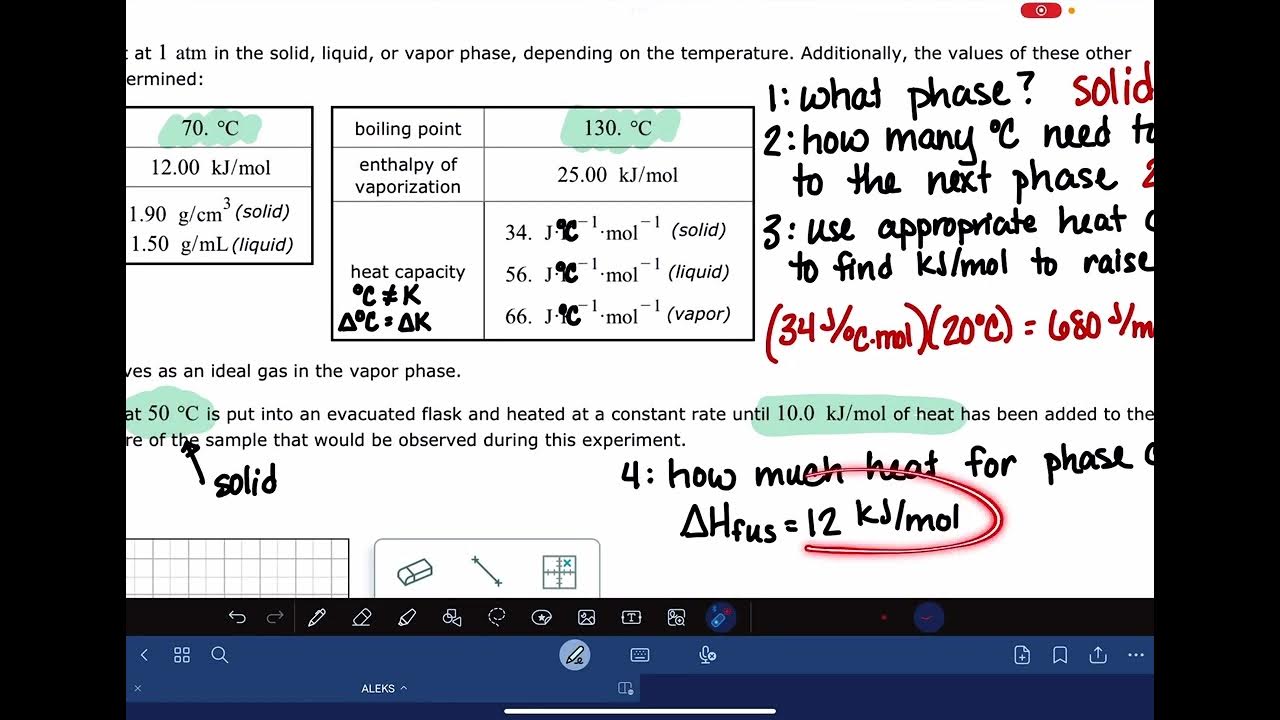 at 1 atm in the solid, liquid, or vapor phase, depending on the temperature. Additionally, the values of these other
ermined:
70. °C
12.00 kJ/mol
1.90 g/cm³ (solid)
1.50 g/mL (liquid)
boiling point 130. °C
enthalpy of
vaporization
25.00 kJ/mol
heat capacity
°C ≠ K
Δ°C = ΔK
34. J·°C⁻¹·mol⁻¹ (solid)
56. J·°C⁻¹·mol⁻¹ (liquid)
66. J·°C⁻¹·mol⁻¹ (vapor)
1: what phase? solid
2: how many °C need to
to the next phase 2
3: use appropriate heat c
to find kJ/mol to raise
(34 J/°C·mol)(20°C) = 680 J/m
ves as an ideal gas in the vapor phase.
at 50 °C is put into an evacuated flask and heated at a constant rate until 10.0 kJ/mol of heat has been added to the
re of the sample that would be observed during this experiment.
solid
4: how much heat for phase c
ΔHfus = 12 kJ/mol
ALEKS